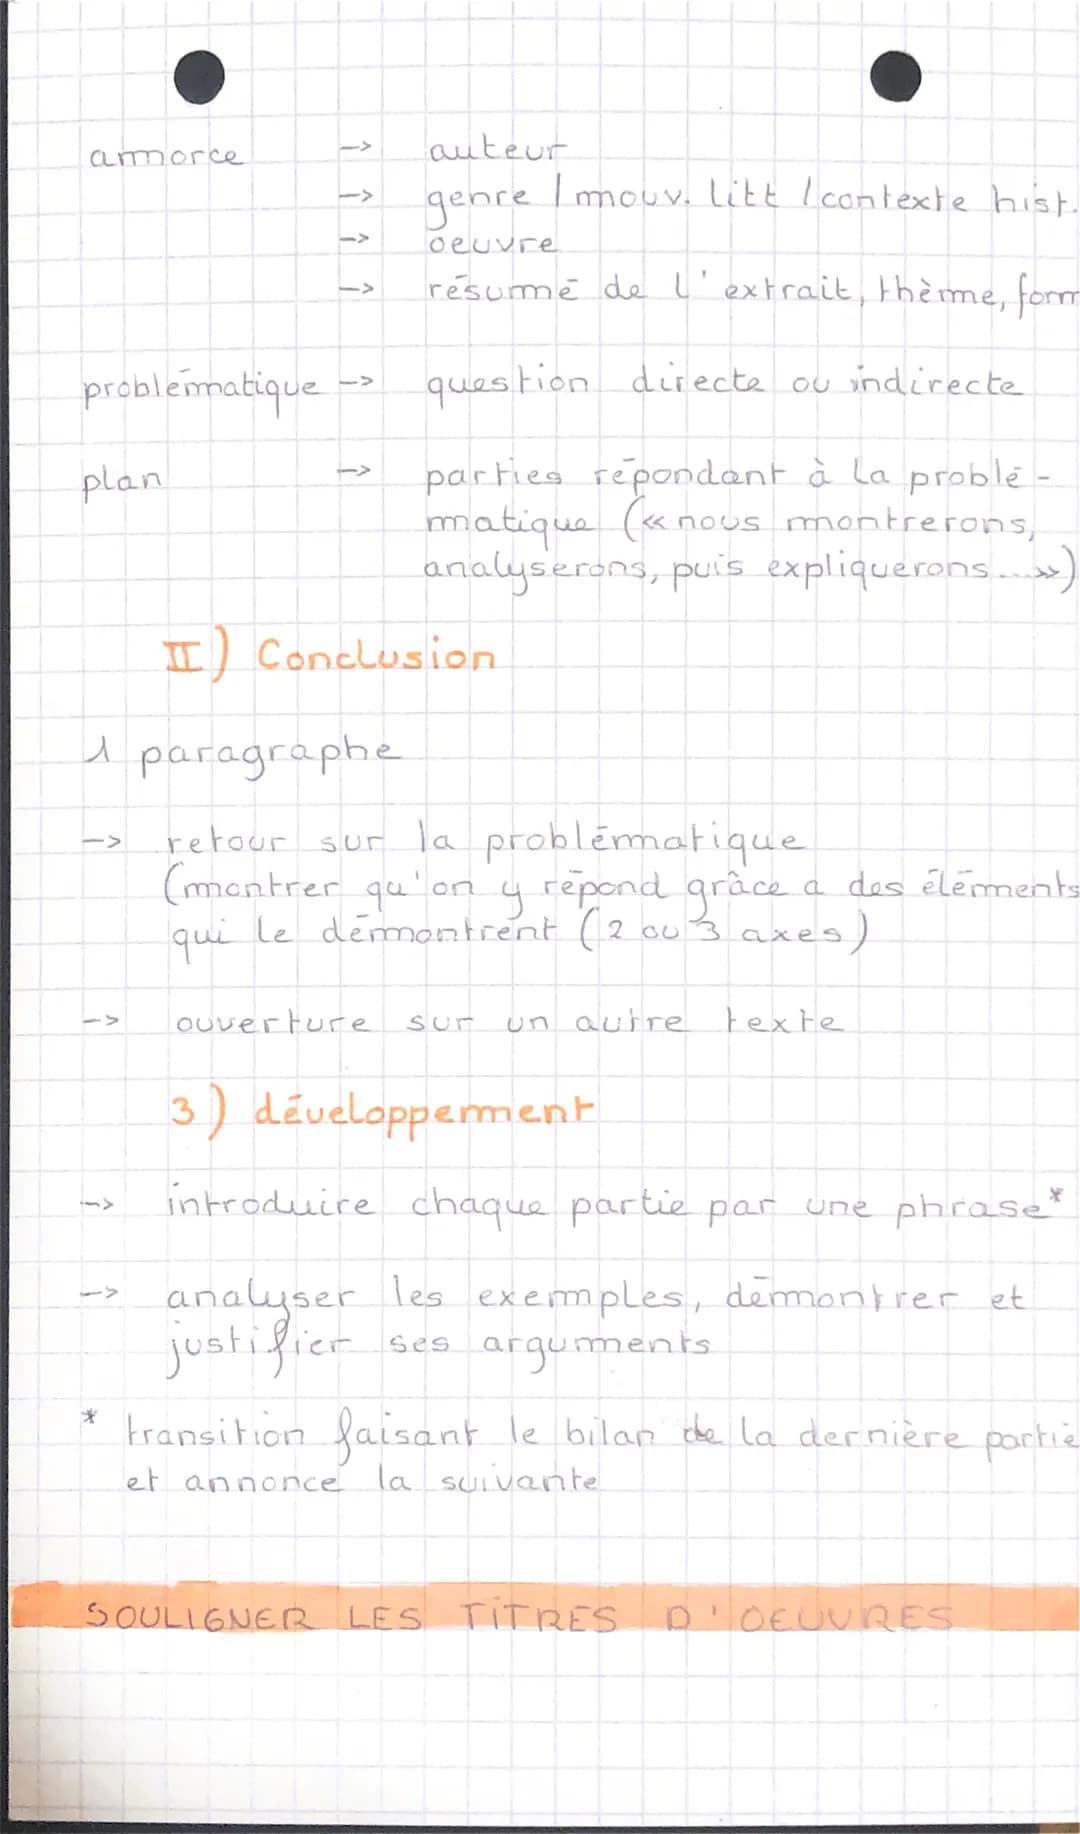 amorce -> auteur
-> genre / mouv. litt / contexte hist.
-> oeuvre
-> résumé de l'extrait, thème, form
problématique -> question directe ou indirecte
plan -> parties répondant à la problé-
matique (« nous montrerons,
analyserons, puis expliquerons... »)
II) Conclusion
1 paragraphe
-> retour sur la problématique
(montrer qu'on y répond grâce a des éléments
qui le démontrent (2 ou 3 axes)
-> ouverture sur un autre texte
3) développement
-> introduire chaque partie par une phrase*
-> analyser les exemples, démontrer et
justifier ses arguments
* transition faisant le bilan de la dernière partie
et annonce la suivante
SOULIGNER LES TITRES D'OEUVRES